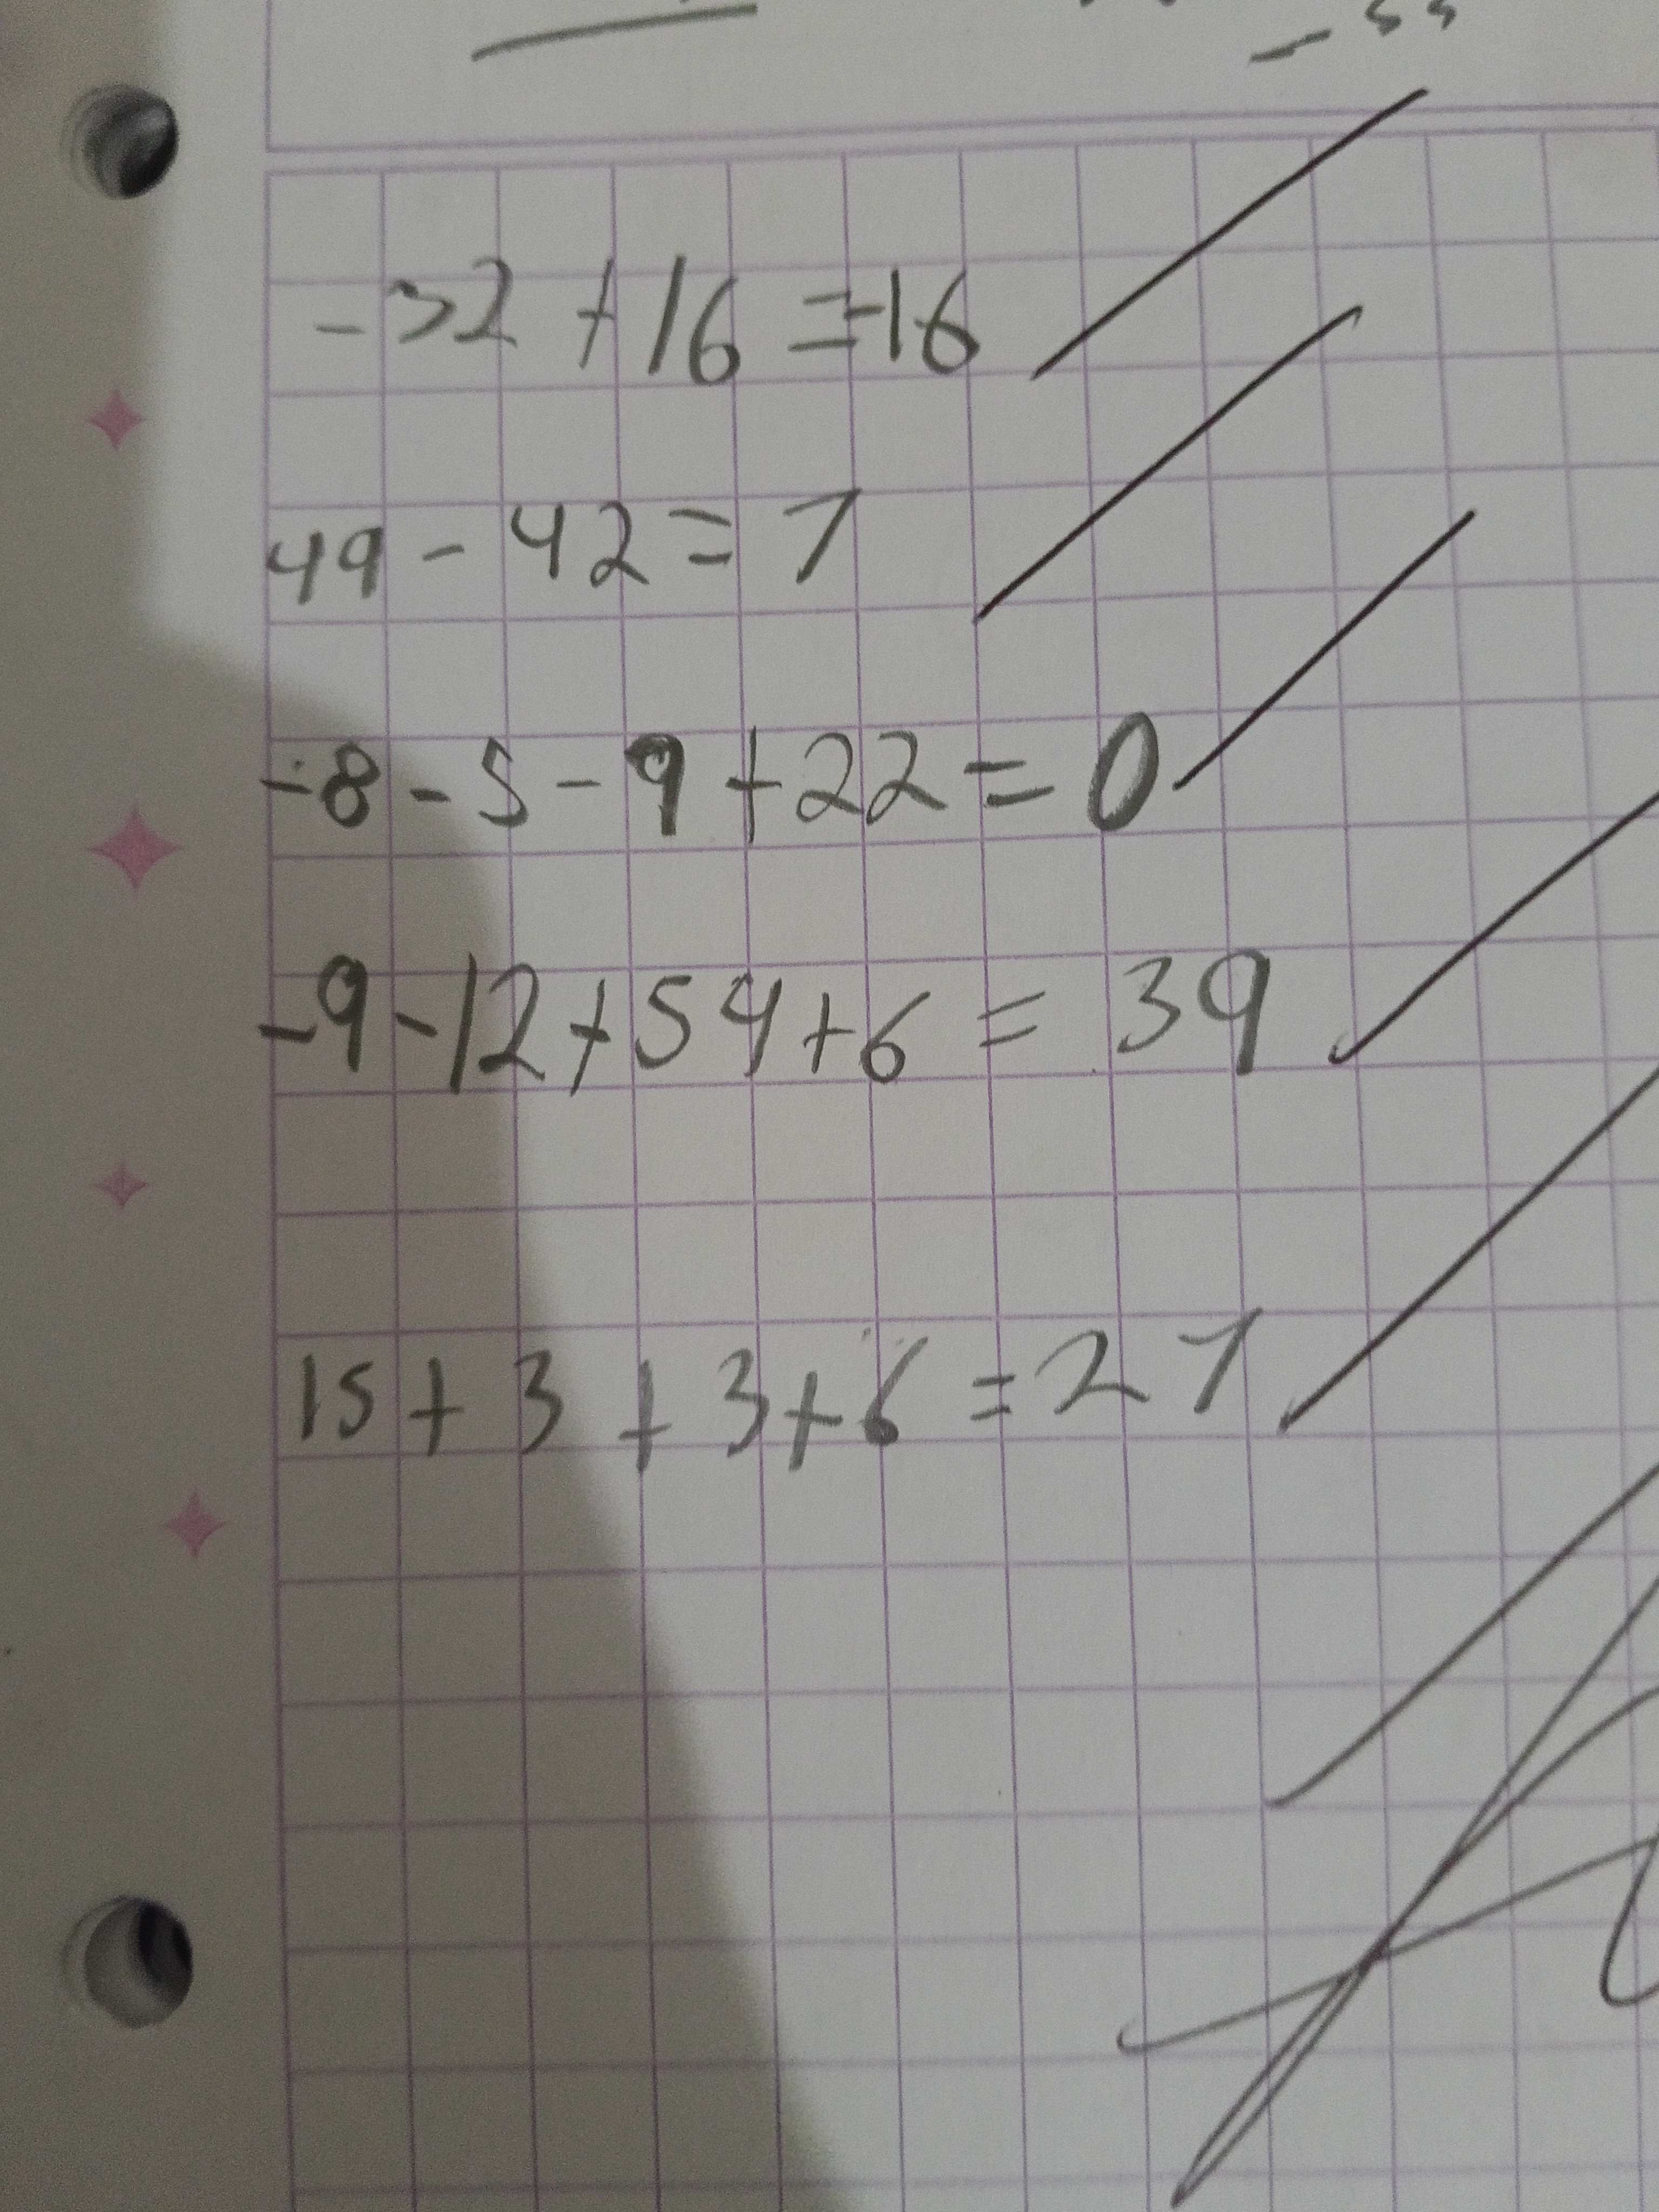 -32 + 16 = -16
49 - 42 = 7
-8 - 5 - 9 + 22 = 0
-9 - 12 + 54 + 6 = 39
15 + 3 + 3 + 6 = 27